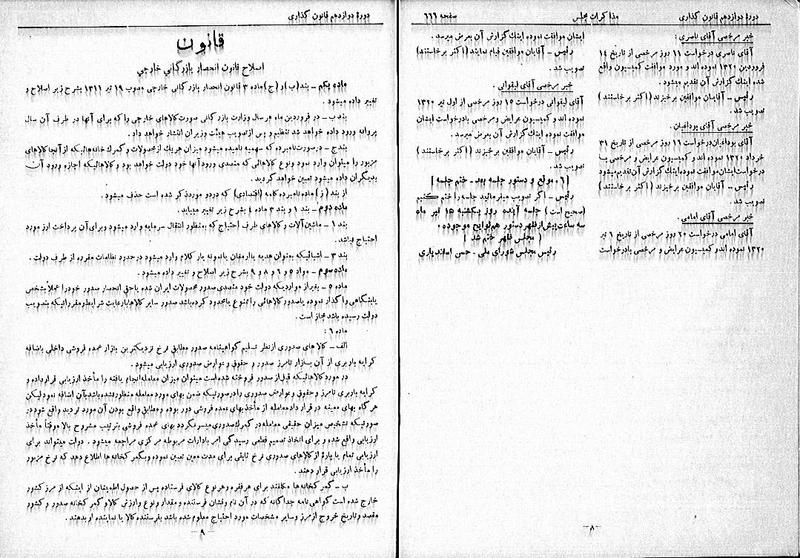 دورهٔ دوازدهم قانون گذاری
مذاکرات مجلس
صفحه ٦٦٦
خبر مرخصی آقای ناصری:
آقای ناصری درخواست ١١ روز مرخصی از تاریخ ١٤
فروردین ١٣٢٠ نموده اند و مورد موافقت کمیسیون واقع
شده اینک گزارش آن تقدیم میشود.
رئیس ـ آقایان موافقین برخیزند (اکثر برخاستند)
تصویب شد.
آقای درخواست ١١ روز مرخصی از تاریخ ٣١
خرداد ١٣٢٠ نموده اند و کمیسیون عرایض و مرخصی با
درخواست ایشان موافقت نموده اینک گزارش آن تقدیم میشود
رئیس ـ آقایان موافقین برخیزند (اکثر برخاستند)
تصویب شد.
خبر مرخصی آقای امامی:
آقای امامی درخواست ٢٠ روز مرخصی از تاریخ ٦ تیر
١٣٢٠ نموده اند و کمیسیون عرایض و مرخصی با درخواست
ایشان موافقت نموده اینک گزارش آن بعرض میرسد.
رئیس ـ آقایان موافقین قیام نمایند (اکثر برخاستند)
تصویب شد.
خبر مرخصی آقای لیقوانی:
آقای لیقوانی درخواست ١٥ روز مرخصی از اول تیر ١٣٢٠
نموده اند و کمیسیون عرایض و مرخصی با درخواست ایشان
موافقت نموده اینک گزارش آن بعرض میرسد.
رئیس ـ آقایان موافقین برخیزند (اکثر برخاستند)
تصویب شد.
[٦ـ موقع و دستور جلسه بعد ـ ختم جلسه]
رئیس ـ اگر تصویب میفرمائید جلسه را ختم کنیم
(صحیح است) جلسه آینده روز یکشنبه ١٥ تیر ماه
سه ساعت پیش از ظهر دستور هم لوایح موجوده.
[مجلس ظهر ختم شد]
رئیس مجلس شورای ملی ـ حسن اسفندیاری
ـ٨ـ
دورهٔ دوازدهم قانون گذاری
قانون
اصلاح قانون انحصار بازرگانی خارجی
ماده یکم ـ بند (ب) و (ج) ماده ٣ قانون انحصار بازرگانی خارجی مصوب ١٩ تیر ١٣١١ بشرح زیر اصلاح و
تغییر داده میشود.
بند ب ـ در فروردین ماه هر سال وزارت بازرگانی صورت کالاهای خارجی را که برای آنها در ظرف آن سال
پروانه ورود داده خواهد شد تنظیم و پس از تصویب هیئت وزیران انتشار خواهد داد.
بند ج ـ در صورت نامبرده که سهمیه نامیده میشود میزان هریک از محصولات و گمرک خانه هائیکه از آنجا کالاهای
مزبور را میتوان وارد نمود و نوع کالاهائی که متصدی ورود آنها خود دولت خواهد بود و کالاهائیکه اجازه ورود آن
بدیگران داده میشود تعیین خواهد گردید.
از بند (ز) ماده نامبرده کلمه (اقتصادی) که در دو مورد ذکر شده است حذف میشود.
ماده دوم ـ بند ١ و بند ٣ ماده ٤ بشرح زیر تغییر مییابد.
بند ١ ـ ماشین آلات و کالاهای طرف احتیاج که بمنظور انتقال سرمایه وارد میشود و برای آن پرداخت ارز مورد
احتیاج نباشد.
بند ٣ ـ اشیائیکه بعنوان هدیه یا ارمغان یا نمونه یا رکلام وارد میشود در حدود نظامات مقرره از طرف دولت.
ماده سوم ـ مواد ٥ و ٦ و ٨ و ٩ بشرح زیر اصلاح و تغییر داده میشود.
ماده ٥ ـ بغیر از مواردیکه دولت خود متصدی صدور محصولات ایران شده یا حق انحصار صدور خود را عملاً بشخص
یا بنگاهی واگذار نموده یا صدور کالاهائی را ممنوع یا محدود کرده باشد صدور سایر کالاها با رعایت شرایط و مقرراتیکه بتصویب
دولت رسیده باشد مجاز است.
ماده ٦:
الف ـ کالاهای صدوری از نظر تسلیم گواهینامه صدور مطابق نرخ نزدیکترین بازار عمده فروشی داخلی باضافه
کرایه باربری از آن بازار تا مرز صدور و حقوق و عوارض صدوری ارزیابی میشود.
در مورد کالاهائیکه قبل از صدور فروخته شده است میتوان میزان معامله انجام یافته را مأخذ ارزیابی قرار داده و
کرایه باربری تا مرز و حقوق و عوارض صدوری را در صورتیکه ضمن بهای مورد معامله منظور نشده باشد بآن اضافه نمود لیکن
هرگاه بهای معینه در قرارداد معامله از مأخذ بهای عمده فروشی دور بوده و مطابق واقع بودن آن مورد تردید واقع شود در
صورتیکه تشخیص میزان حقیقی معامله در گمرک صدوری میسر نگردد بهای عمده فروشی بترتیب مشروح بالا موقتاً مأخذ
ارزیابی واقع شده و برای اتخاذ تصمیم قطعی رسیدگی امر بادارات مربوطه مرکزی مراجعه میشود. دولت میتواند برای
ارزیابی تمام یا پارهٔ از کالاهای صدوری نرخ ثابتی برای مدت معین تعیین نموده و بگمرکخانه ها اطلاع دهد که نرخ مزبور
را مأخذ ارزیابی قرار دهند.
ب ـ گمرکخانه ها مکلفند برای هر فقره و هر نوع کالای فرستاده پس از حصول اطمینان از اینکه از مرز کشور
خارج شده است گواهی نامه جداگانه که در آن نام و نشان فرستنده و مقدار و نوع و ارزش کالا و گمرکخانه صدور و کشور
مقصد و تاریخ خروج از مرز و سایر مشخصات مورد احتیاج معلوم شده باشد بفرستنده کالا یا نماینده او بدهند.
ـ٩ـ